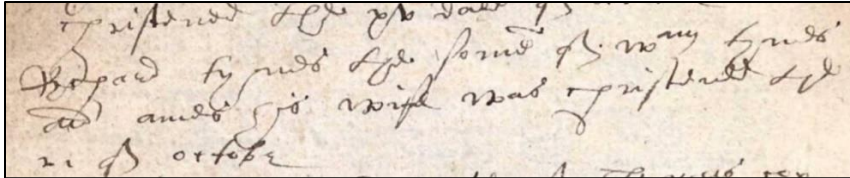 christened the xv daie of
Rychard tymes the sonne of wm tymes
and annes his wife was christened the
xi of octobr